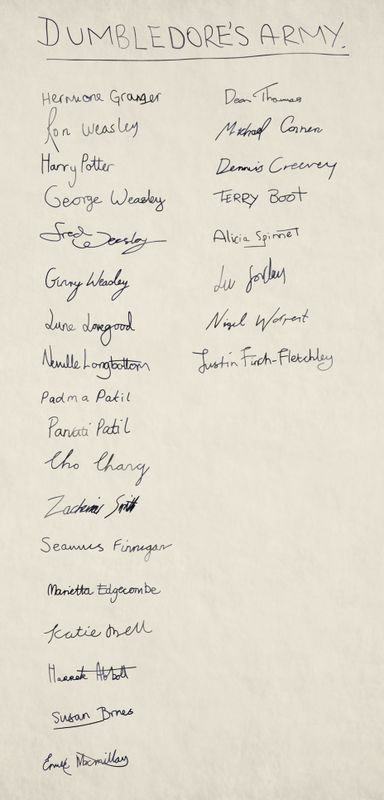 DUMBLEDORE'S ARMY.
Hermione Granger
Ron Weasley
Harry Potter
George Weasley
Fred Weasley
Ginny Weasley
Luna Lovegood
Neville Longbottom
Padma Patil
Parvati Patil
Cho Chang
Zacharias Smith
Seamus Finnegan
Marietta Edgecombe
Katie Bell
Hannah Abbott
Susan Bnes
Ernie Macmillan
Dean Thomas
Michael Corner
Dennis Creevey
TERRY BOOT
Alicia Spinnet
Lee Jordan
Nigel Wolpert
Justin Finch-Fletchley